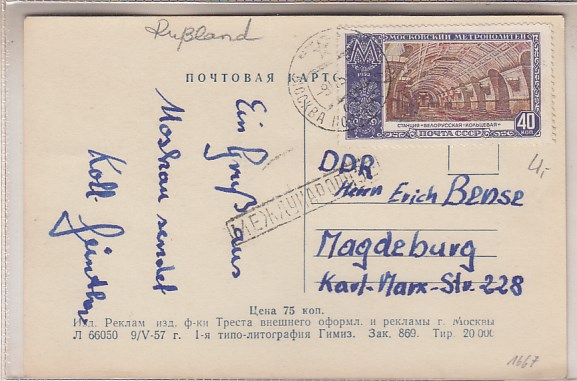 Rußland
МОСКОВСКИЙ МЕТРОПОЛИТЕН
М
СТАНЦИЯ «БЕЛОРУССКАЯ-КОЛЬЦЕВАЯ»
ПОЧТА СССР
40
КОП
МОСКВА
ПОЧТОВАЯ КАРТО
Ein Gruß aus
Moskau sendet
Koll. Günther
МЕЖДУНАРОДНОЕ
DDR
Herrn Erich Bense
Magdeburg
Karl-Marx-Str. 228
4,-
Цена 75 коп.
Изд. Реклам изд. ф-ки Треста внешнего оформл. и рекламы г. Москвы
Л 66050 9/V-57 г. 1-я типо-литография Гимиз. Зак. 869. Тир. 20 000.
1667